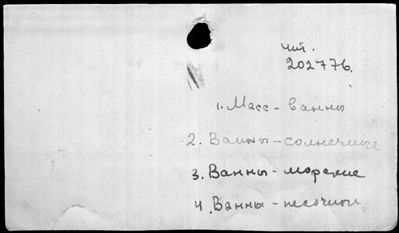 чит.
202776.
1. Масс - ванны
2. Ванны - солнечные
3. Ванны - морские
4. Ванны - песочные